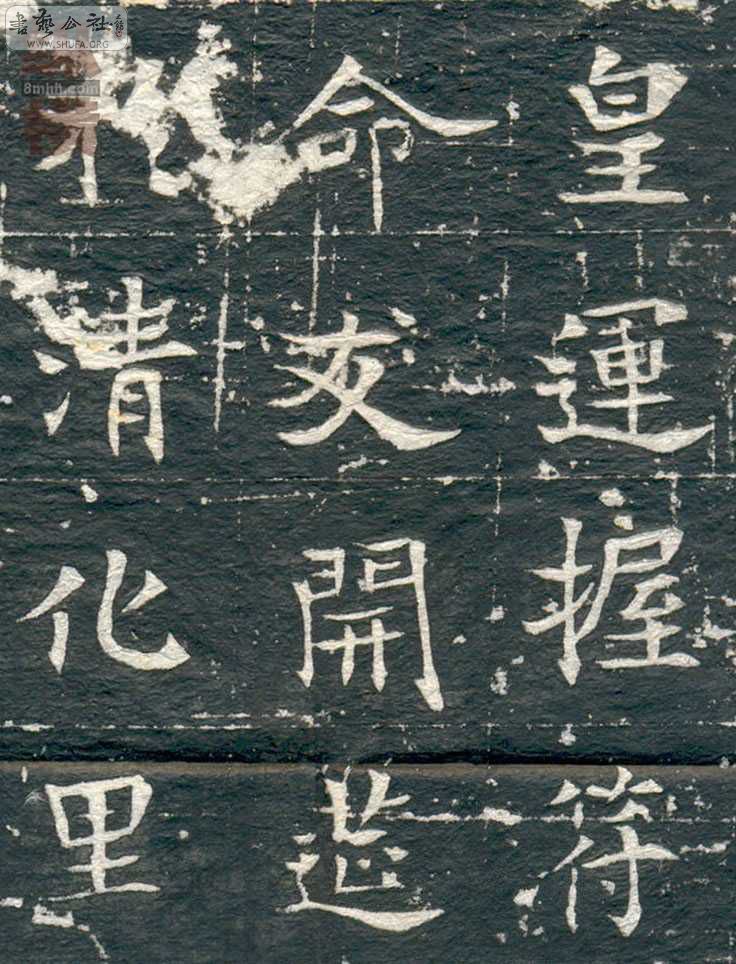 書藝公社
WWW.SHUFA.ORG
8mhh.com
皇運握符
命開
清化里